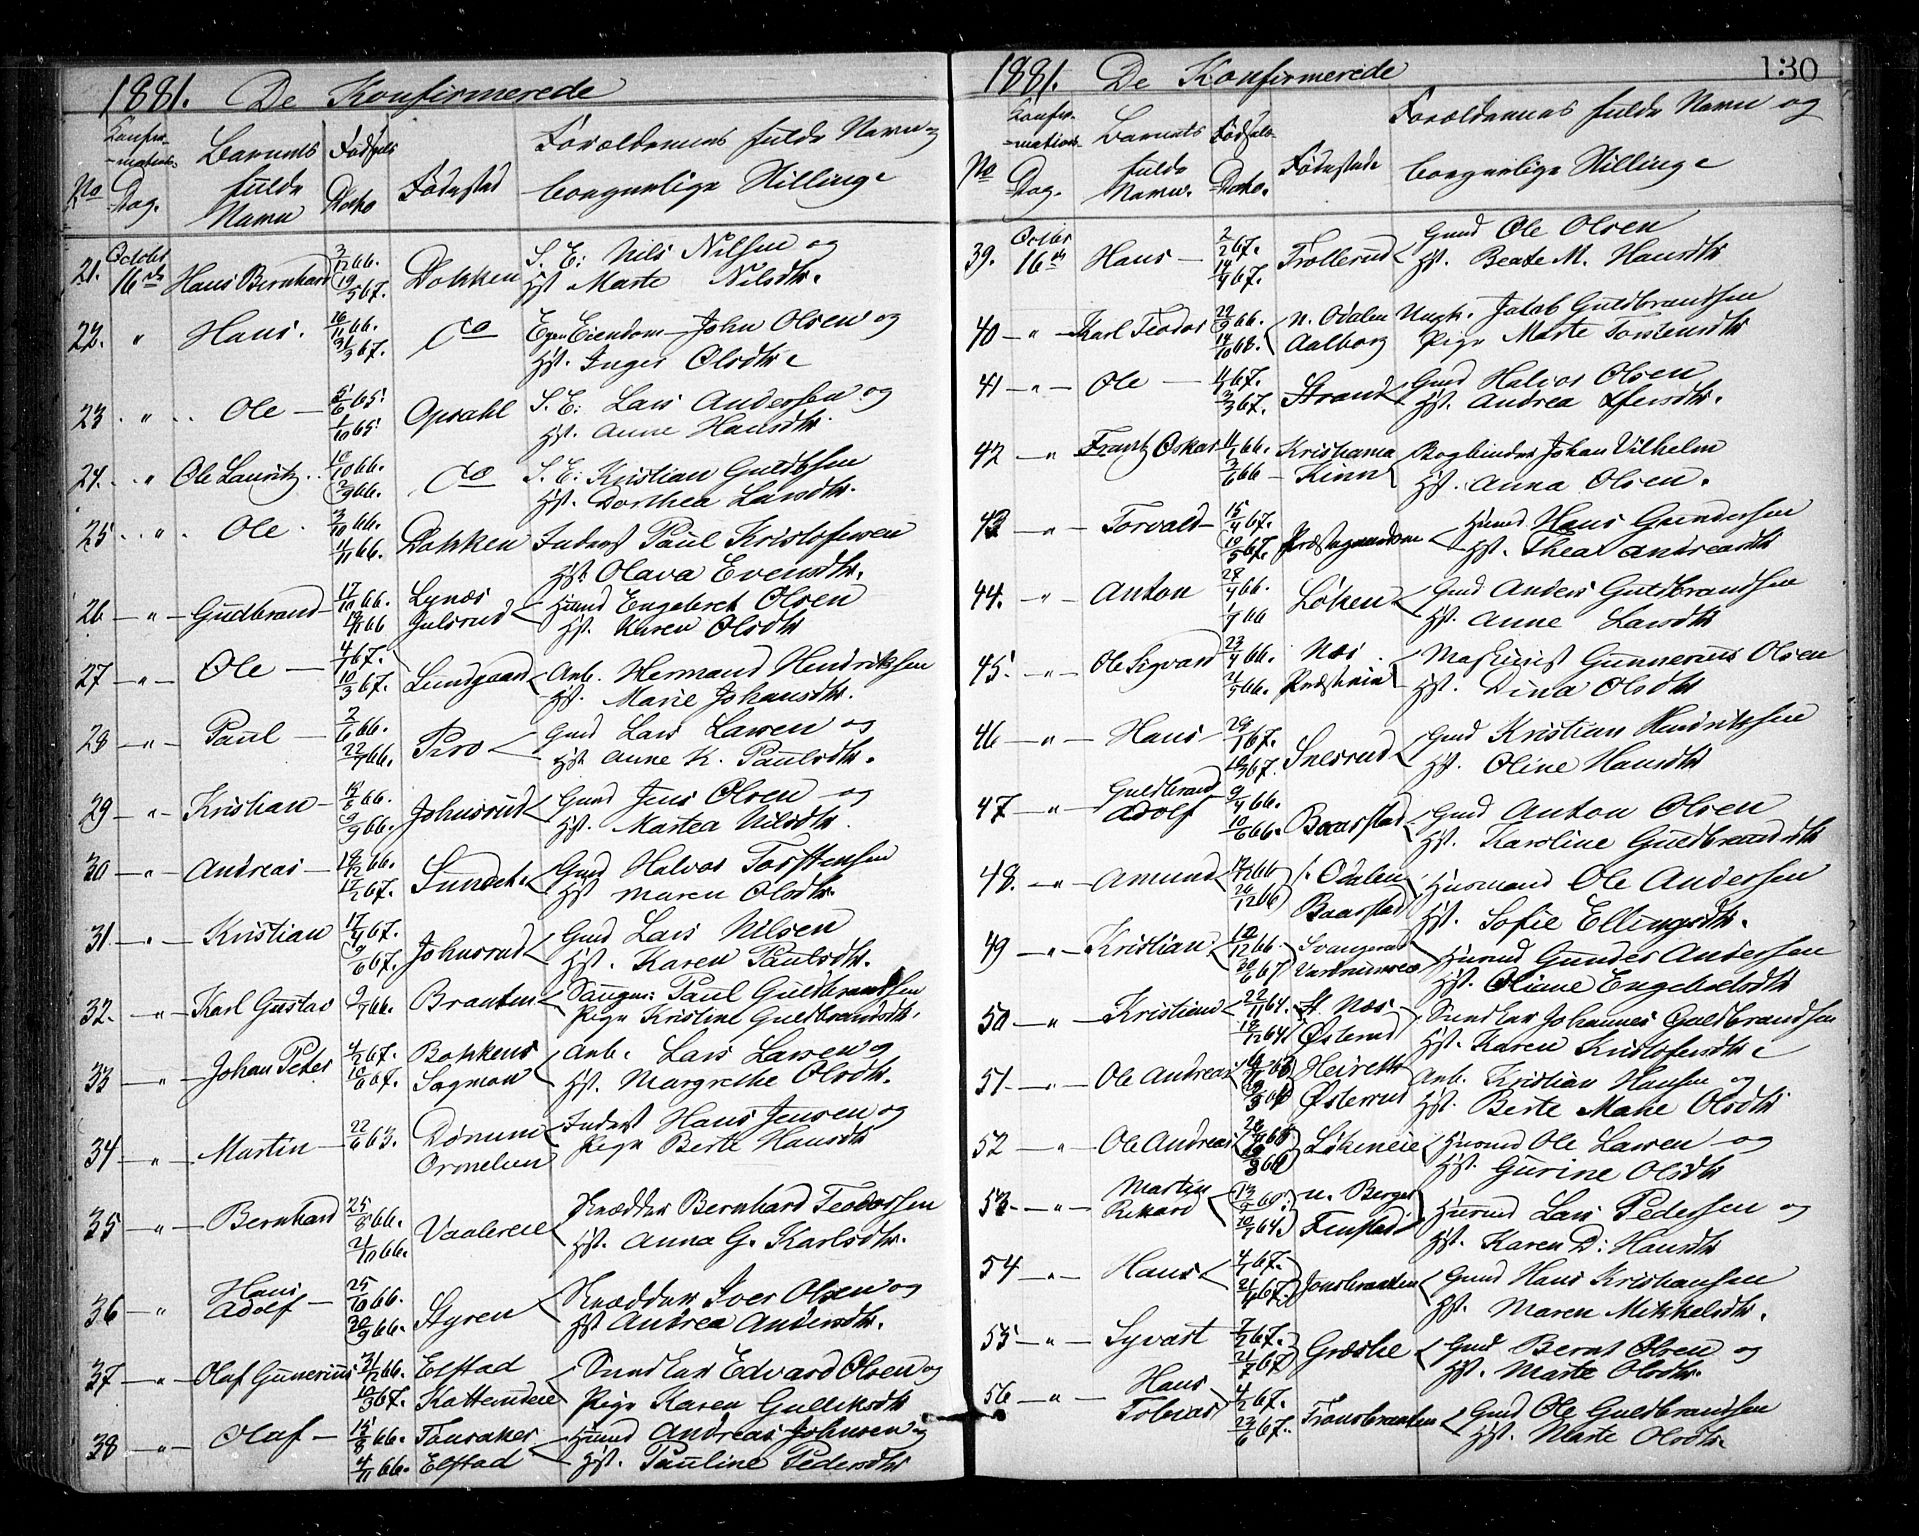 1881. De Konfirmerede
No
Konfir-
-mations-
Dag.
Barnets
fulde
Navn
Fødsels
Dato
Fødested
Forældrenes fulde Navn og
borgerlige Stilling.
21. October 16de Hans Bernhard 3/12 66. 19/5 67. Dokken S. E: Nils Nilsen og
Hst Marte Nilsdtr.
22. " Hans. 16/11 66. 31/3 67. Do Egen Eiendom John Olsen og
Hst. Inger Olsdtr.
23 " Ole 5/6 65 1/10 65 Opsahl S. E: Lars Andersen og
Hst. Anne Hansdtr.
24. " Ole Lauritz 66. 66. Do S. E: Kristian Guldbsen
Hst. Dorthea Larsdtr.
25 " Ole 3/10 66. 1/11 66. Dokken Inderst Paul Kristofersen
Hst. Olava Evensdtr.
26 " Gudbrand 17/10 66. 66 Lynæs Julsrud Husmd Engebret Olsen
Hst. Karen Olsdtr
27 " Ole 4/1 67. 10/3 67. Lundgaard Arb. Hermand Hendriksen
Hst. Marie Johansdtr.
28 " Paul 2/6 66. 22/7 66. Piro Gmd Lars Larsen og
Hst Anne K. Paulsdtr.
29 " Kristian 66. 9/9 66. Johnsrud Gmd Jens Olsen og
Hst. Martea Nilsdtr.
30 " Andreas 66. 17/2 67. Sundet. Gmd Halvor Torstensen
Hst Maren Olsdtr.
31 " Kristian 17/4 67. 9/6 67. Johnsrud Gmd Lars Nilsen
Hst. Karen Paulsdtr.
32. " Karl Gustav 9/7 66. Braaten Saugm: Paul Guldbrandsen
Pige Kristine Guldbrandsdtr.
33 " Johan Peter 4/2 67. 10/6 67. Bakkens Sagmoen Arb. Lars Larsen og
Hst. Margrethe Olsdtr.
34 " Martin 22/6 63. Dømmen Ormelien Inderst Hans Jensen og
Pige Berte Hansdtr
35 " Bernhard 25/8 66. 21/10 66. Vaalereie Skrædder Bernhard Teodorsen
Hst. Anna G. Karlsdtr.
36 " Hans Adolf 25/ 66. 30/9 66. Styren Skrædder Iver Olsen og
Hst Andrea Andersdtr.
37 " Olaf Gunerius 31/12 66. 10/3 67. Elstad Kattemdeie Snedker Edvard Olsen og
Pige Karen Gulliksdtr
38 " Olaf 15/8 66. 4/11 66. Tausaker Elstad Husmd Andreas Johnsen og
Hst. Pauline Pedersdtr
1881. De Konfirmerede 130
No
Konfir-
-mations-
Dag.
Barnets
fulde
Navn.
Fødsels-
Dato.
Fødested
Forældrenes fulde Navn og
borgerlige Stilling
39. Octber 16de Hans 2/2 67. 14/4 67. Trollerud Gmd Ole Olsen
Hst. Beate M. Hansdtr
40 " Karl Teodor 29/9 66. 14/10 68. n. Odalen Aalborg Ungk. Jakob Guldbrandsen
Pige Marte Torstensdtr
41 " Ole 67. 3/3 67. Strand Gmd Halvor Olsen
Hst. Andrea
42 " Frantz Oskar 66. 3/6 66 Kristiania Kinn Bogbinder Johan Vilhelm
Hst. Anna Olsen.
43 " Torvald 15/4 67. 19/5 67. Præstegaarden Husmd Hans Gundersen
Hst. Thea Andreasdtr
44. " Anton 28/4 66. Løken Gmd Anders Guldbrandsen
Hst. Anne Larsdtr
45. " Ole Sigvard 23/4 66. 66. Næs Præsteeie Maskinist Gunnerius Olsen
Hst. Dina Olsdtr
46 " Hans 28/1 67. 10/3 67. Snesrud Gmd Kristian Hendriksen
Hst. Oline Hansdtr
47 " Guldbrand Adolf 9/4 66. 10/6 66. Baarstad Gmd Anton Olsen
Hst. Karoline Guldbrandsdtr
48. " Amund 66 26/12 66 s. Odalen Baarstad Husmand Ole Andersen
Hst. Sofie Ellingsdtr.
49 " Kristian 66. 30/6 67 Husmd Gunder Andersen
Hst. Oline Engebretsdtr
50 " Kristian 22/11 64. 18/12 64. Næs Østerud Snedker Johannes Guldbrandsen
Hst. Karen Kristofersdtr
51 " Ole Andreas Østerud Arb. Kristian Hansen og
Hst. Berte Marie Olsdtr
52 " Ole Andreas Løkeneie Husmd Ole Larsen og
Hst. Gurine Olsdtr
53 " Martin Rikard 10/7 64. n. Berger Finstad Husmd Lars Pedersen og
Hst. Karen D: Hansdtr
54 " Hans 4/1 67. 21/4 67. Jonsbraaten Gmd Hans Kristiansen
Hst. Maren Mikkelsdtr.
55 " Syvert 7/2 67. 21/4 67 Græslie Gmd Bernt Olsen og
Hst. Marte Olsdtr.
56 " Hans Tobias 4/2 67. 23/6 67. Fransbraaten Gmd Ole Guldbrandsen
Hst. Marte Olsdtr.